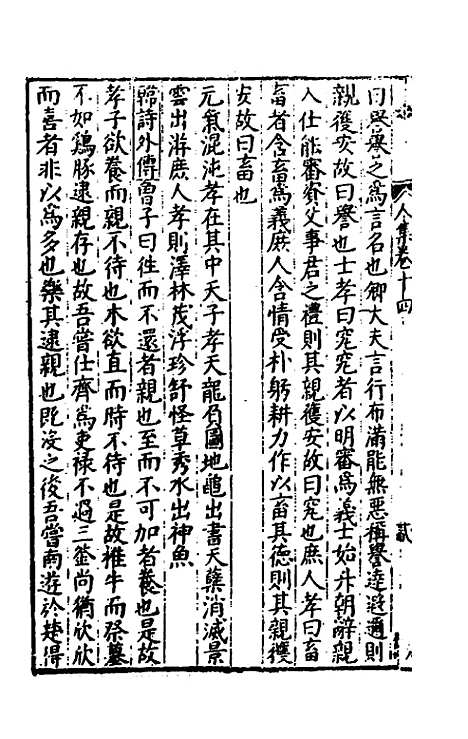 曰譽譽之爲言名也卿大夫言行布滿能無惡稱譽達遐邇則
親獲安故曰譽也士孝曰究究者以明審爲義士始升朝辭親
入仕能審資父事君之禮則其親獲安故曰究也庶人孝曰畜
畜者含畜爲義庶人含情受朴躬耕力作以畜其德則其親獲
安故曰畜也
元氣混沌孝在其中天子孝天龍負圖地龜出書天孽消滅景
雲出游庶人孝則澤林茂浮珍舒怪草秀水出神魚
韓詩外傳曾子曰徃而不還者親也至而不可加者養也是故
孝子欲養而親不待也木欲直而時不待也是故椎牛而祭墓
不如鷄豚逮親存也故吾嘗仕齊爲吏禄不過三釜尚猶欣欣
而喜者非以爲多也樂其逮親也既没之後吾嘗南遊於楚得
人集卷十四